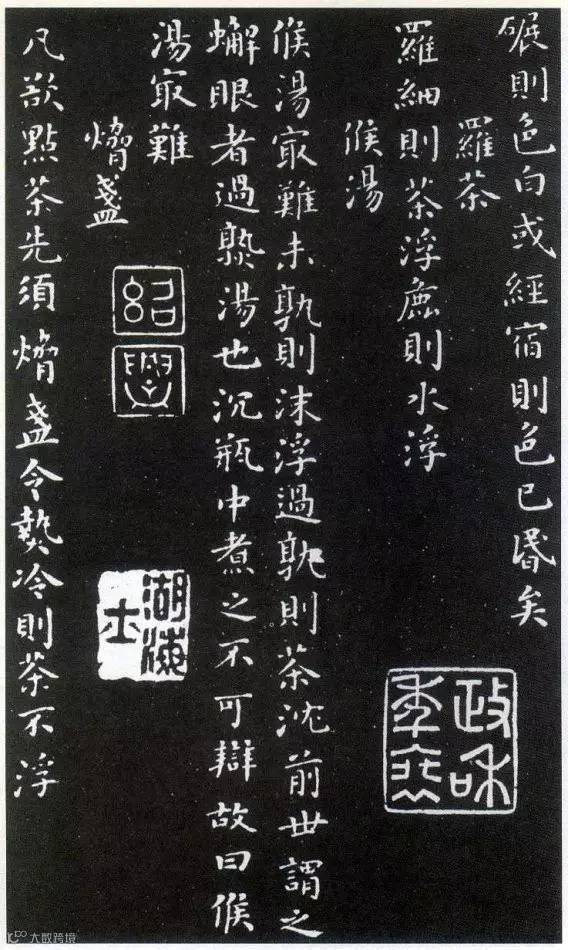 碾則色白或經宿則色已昬矣
羅茶
羅細則茶浮麄則水浮
候湯
候湯㝡難未孰則沫浮過孰則茶沈前世謂之
蠏眼者過熟湯也沉瓶中煮之不可辯故曰候
湯㝡難
熁盞
凡欲點茶先須熁盞令熱冷則茶不浮
紹
興
政龢
湖海
士
大数跨境